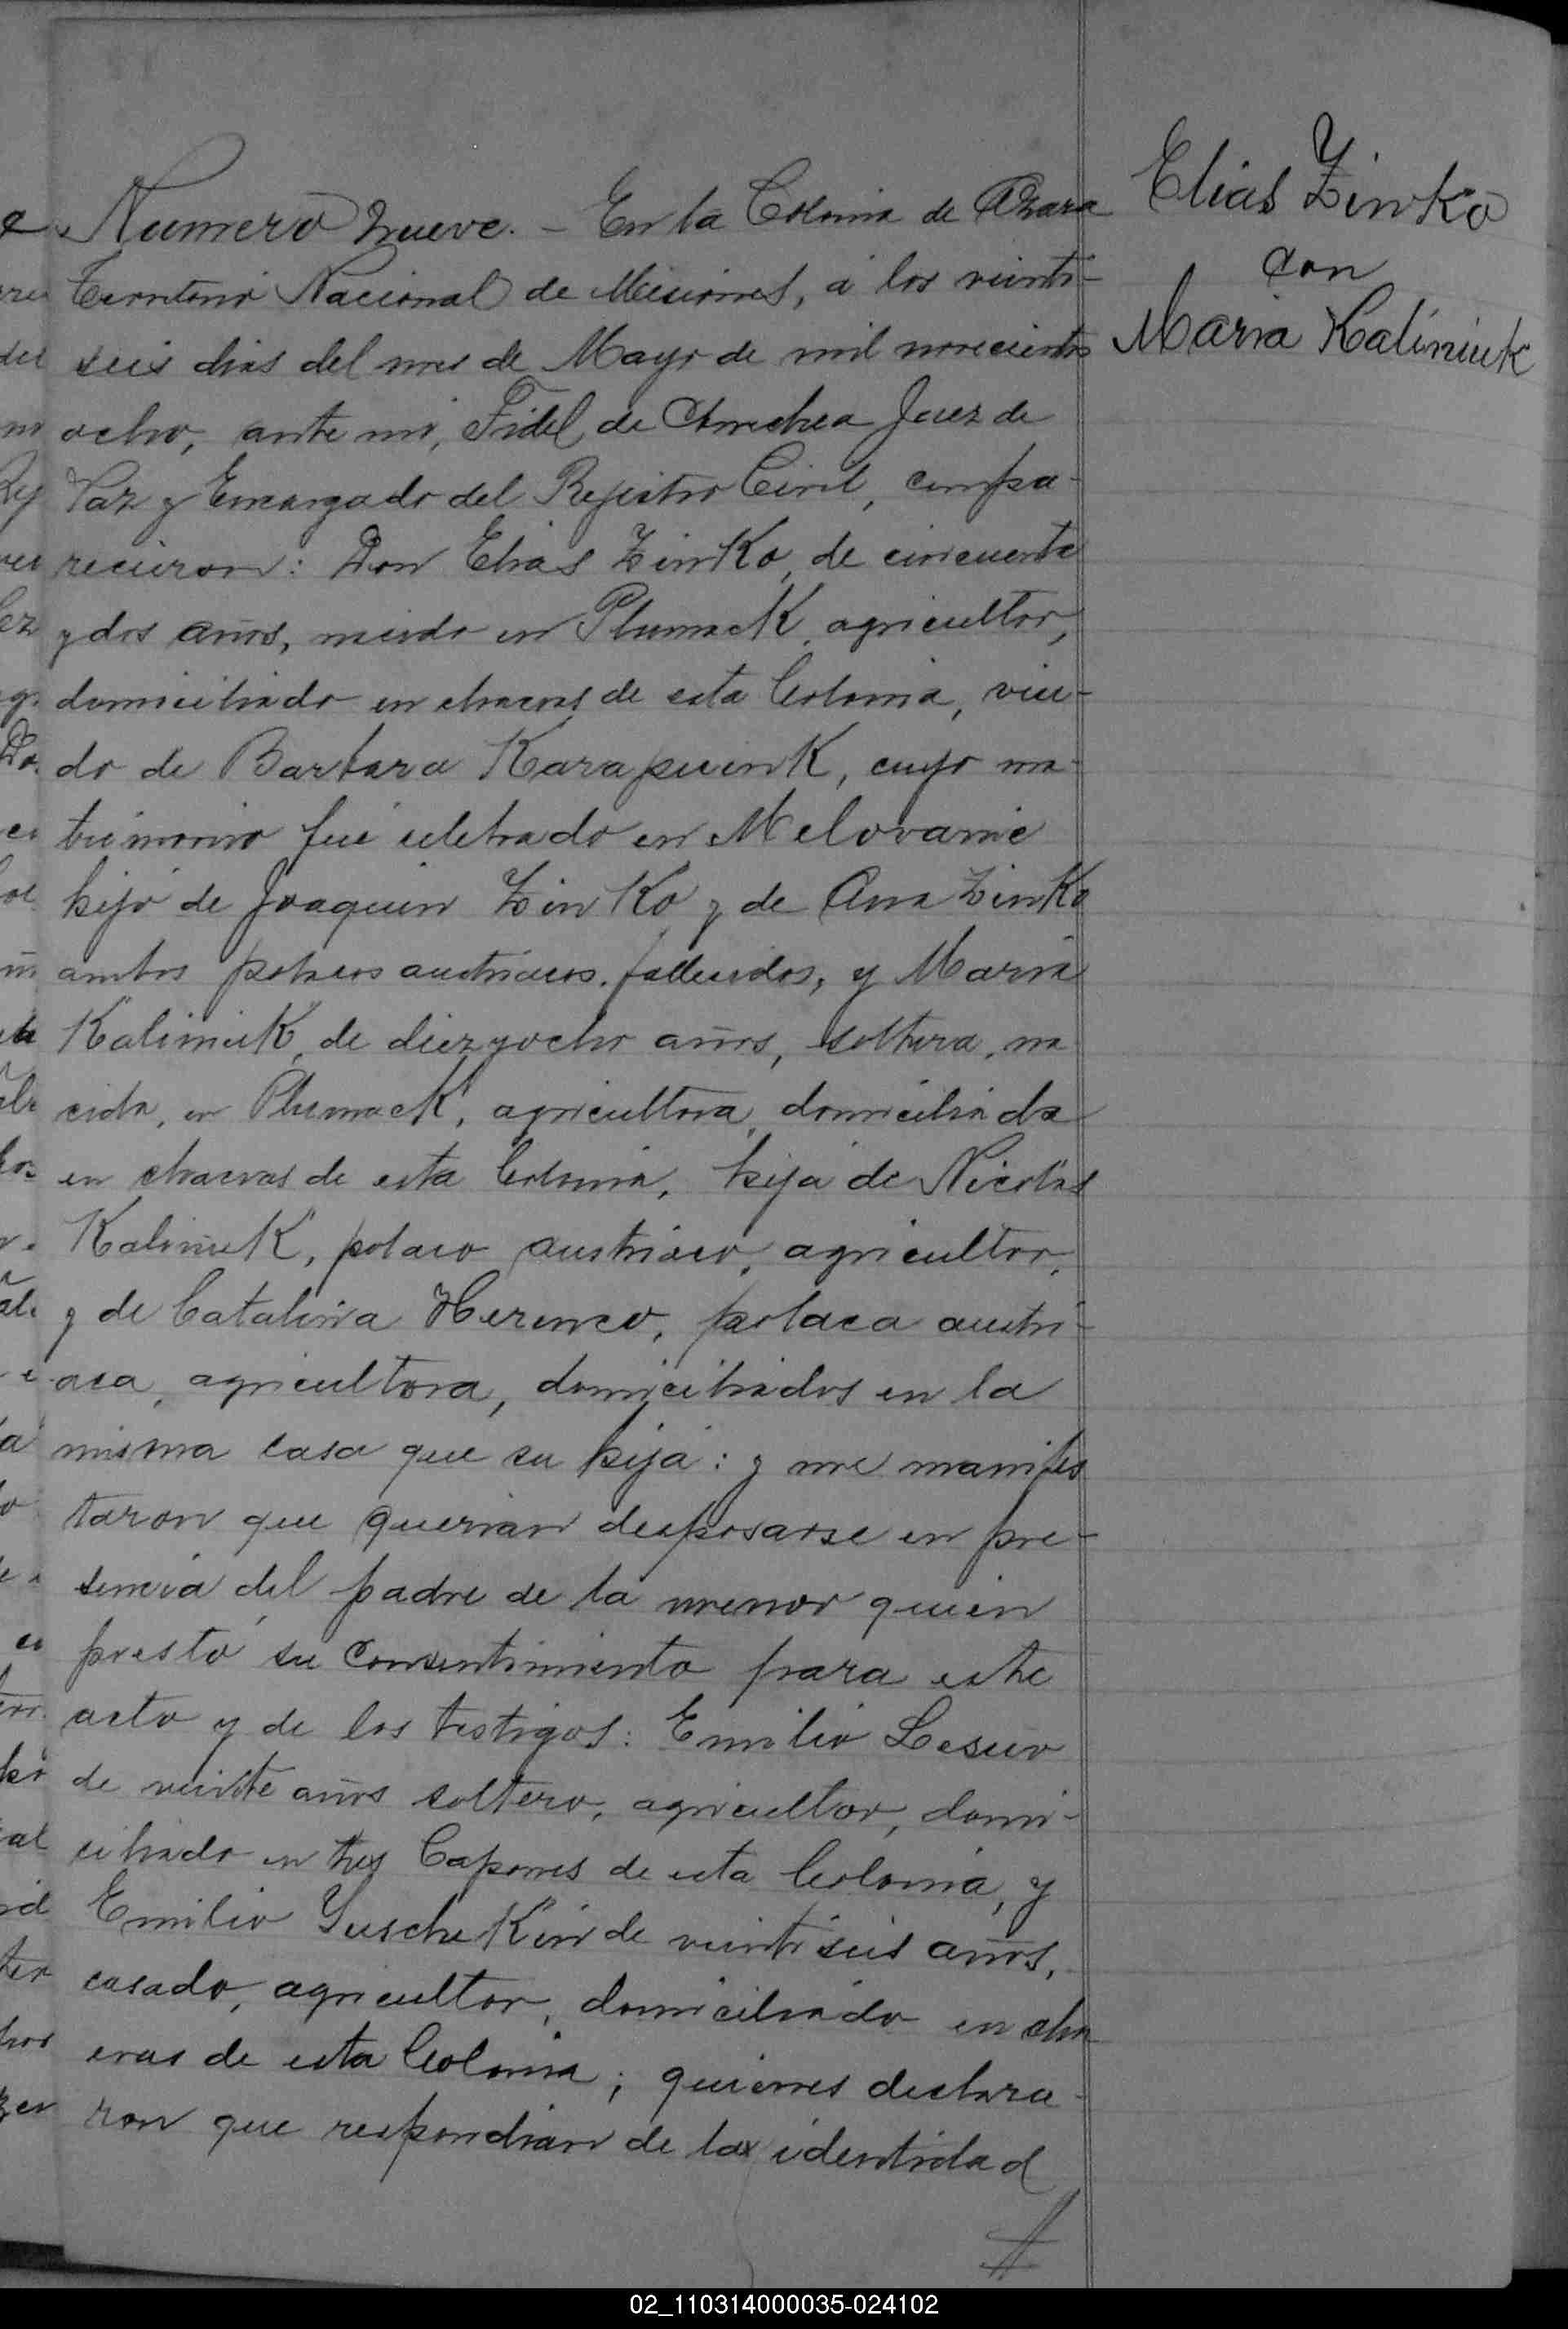 Elias Zinko
con
Maria Kaliniuk
Numero nueve. – En la Colonia de Azara
Territorio Nacional de Misiones, á los veinti-
seis dias del mes de Mayo de mil novecientos
ocho, ante mi, Fidel de Amechea Juez de
Paz y Encargado del Rejistro Civil, compa-
recieron: Don Elias Zinko, de cincuenta
y dos años, nacido en Plumack, agricultor,
domiciliado en chacras de esta Colonia, viu-
do de Barbara Karapuink, cuyo ma-
trimonio fué celebrado en Melovanie
hijo de Joaquin Zinko y de Ana Zinko
ambos polacos austriacos fallecidos, y Maria
Kaliniuk, de diez y ocho años, soltera, na
cida, en Plumack, agricultora, domiciliada
en chacras de esta Colonia, hija de Nicolás
Kaliniuk, polaco austriaco, agricultor,
y de Catalina Herenco, polaca austri-
aca, agricultora, domiciliados en la
misma casa que su hija: y me manifes
taron que querian desposarse en pre-
sencia del padre de la menor quien
prestó su consentimiento para este
acto y de los testigos: Emilio Lesuo
de veinte años soltero, agricultor, domi-
ciliado en tres Capones de esta Colonia, y
Emilio Yuschekin de veintiseis años,
casado, agricultor, domiciliado en cha
cras de esta Colonia; quienes declara-
ron que respondian de la identidad
02_110314000035-024102